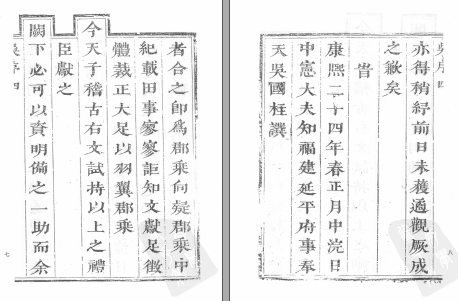 者合之即為郡乘向疑郡乘中
紀載田事寥寥詎知文獻足徵
體裁正大足以羽翼郡乘
今天子稽古右文試持以上之禮
臣獻之
闕下必可以資明備之一助而余
吳序 四
七
吳序四
亦得稍紓前日未獲遹觀厥成
之歉矣
旹
康熙二十四年春正月中浣日
中憲大夫知福建延平府事奉
天吳國柱譔
八